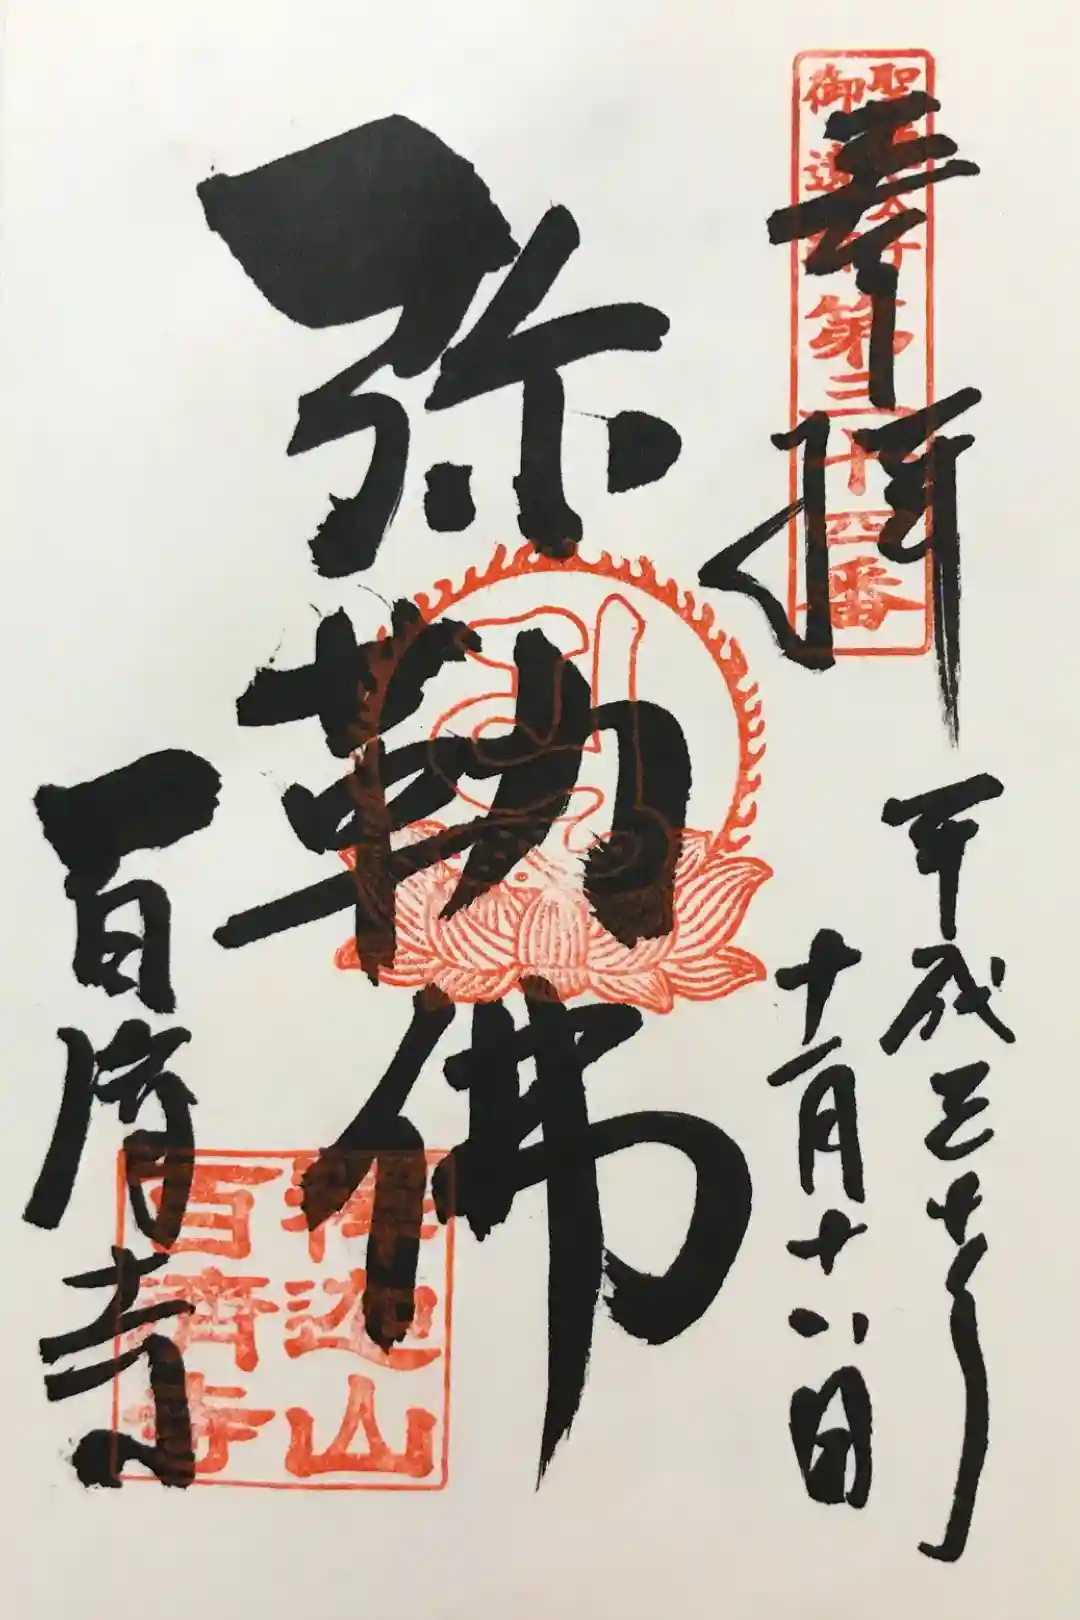 奉拝
平成三十年
十一月十八日
弥勒佛
百済寺
聖徳太子
御遺跡
第三十四番
釈迦山
百濟寺